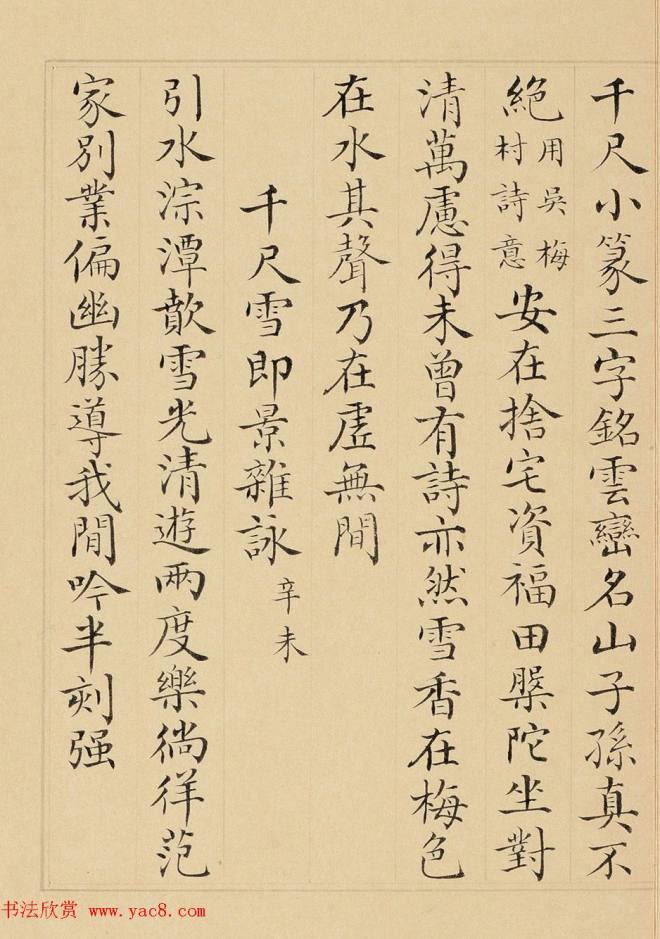 千尺小篆三字銘雲巒名山子孫真不
絶用吳梅村詩意安在捨宅資福田槃陀坐對
清萬慮得未曾有詩亦然雪香在梅色
在水其聲乃在虛無間
千尺雪即景雜詠辛未
引水淙潭歕雪光清遊兩度樂徜徉范
家別業偏幽勝導我閒吟半刻强
书法欣赏 www.yac8.com